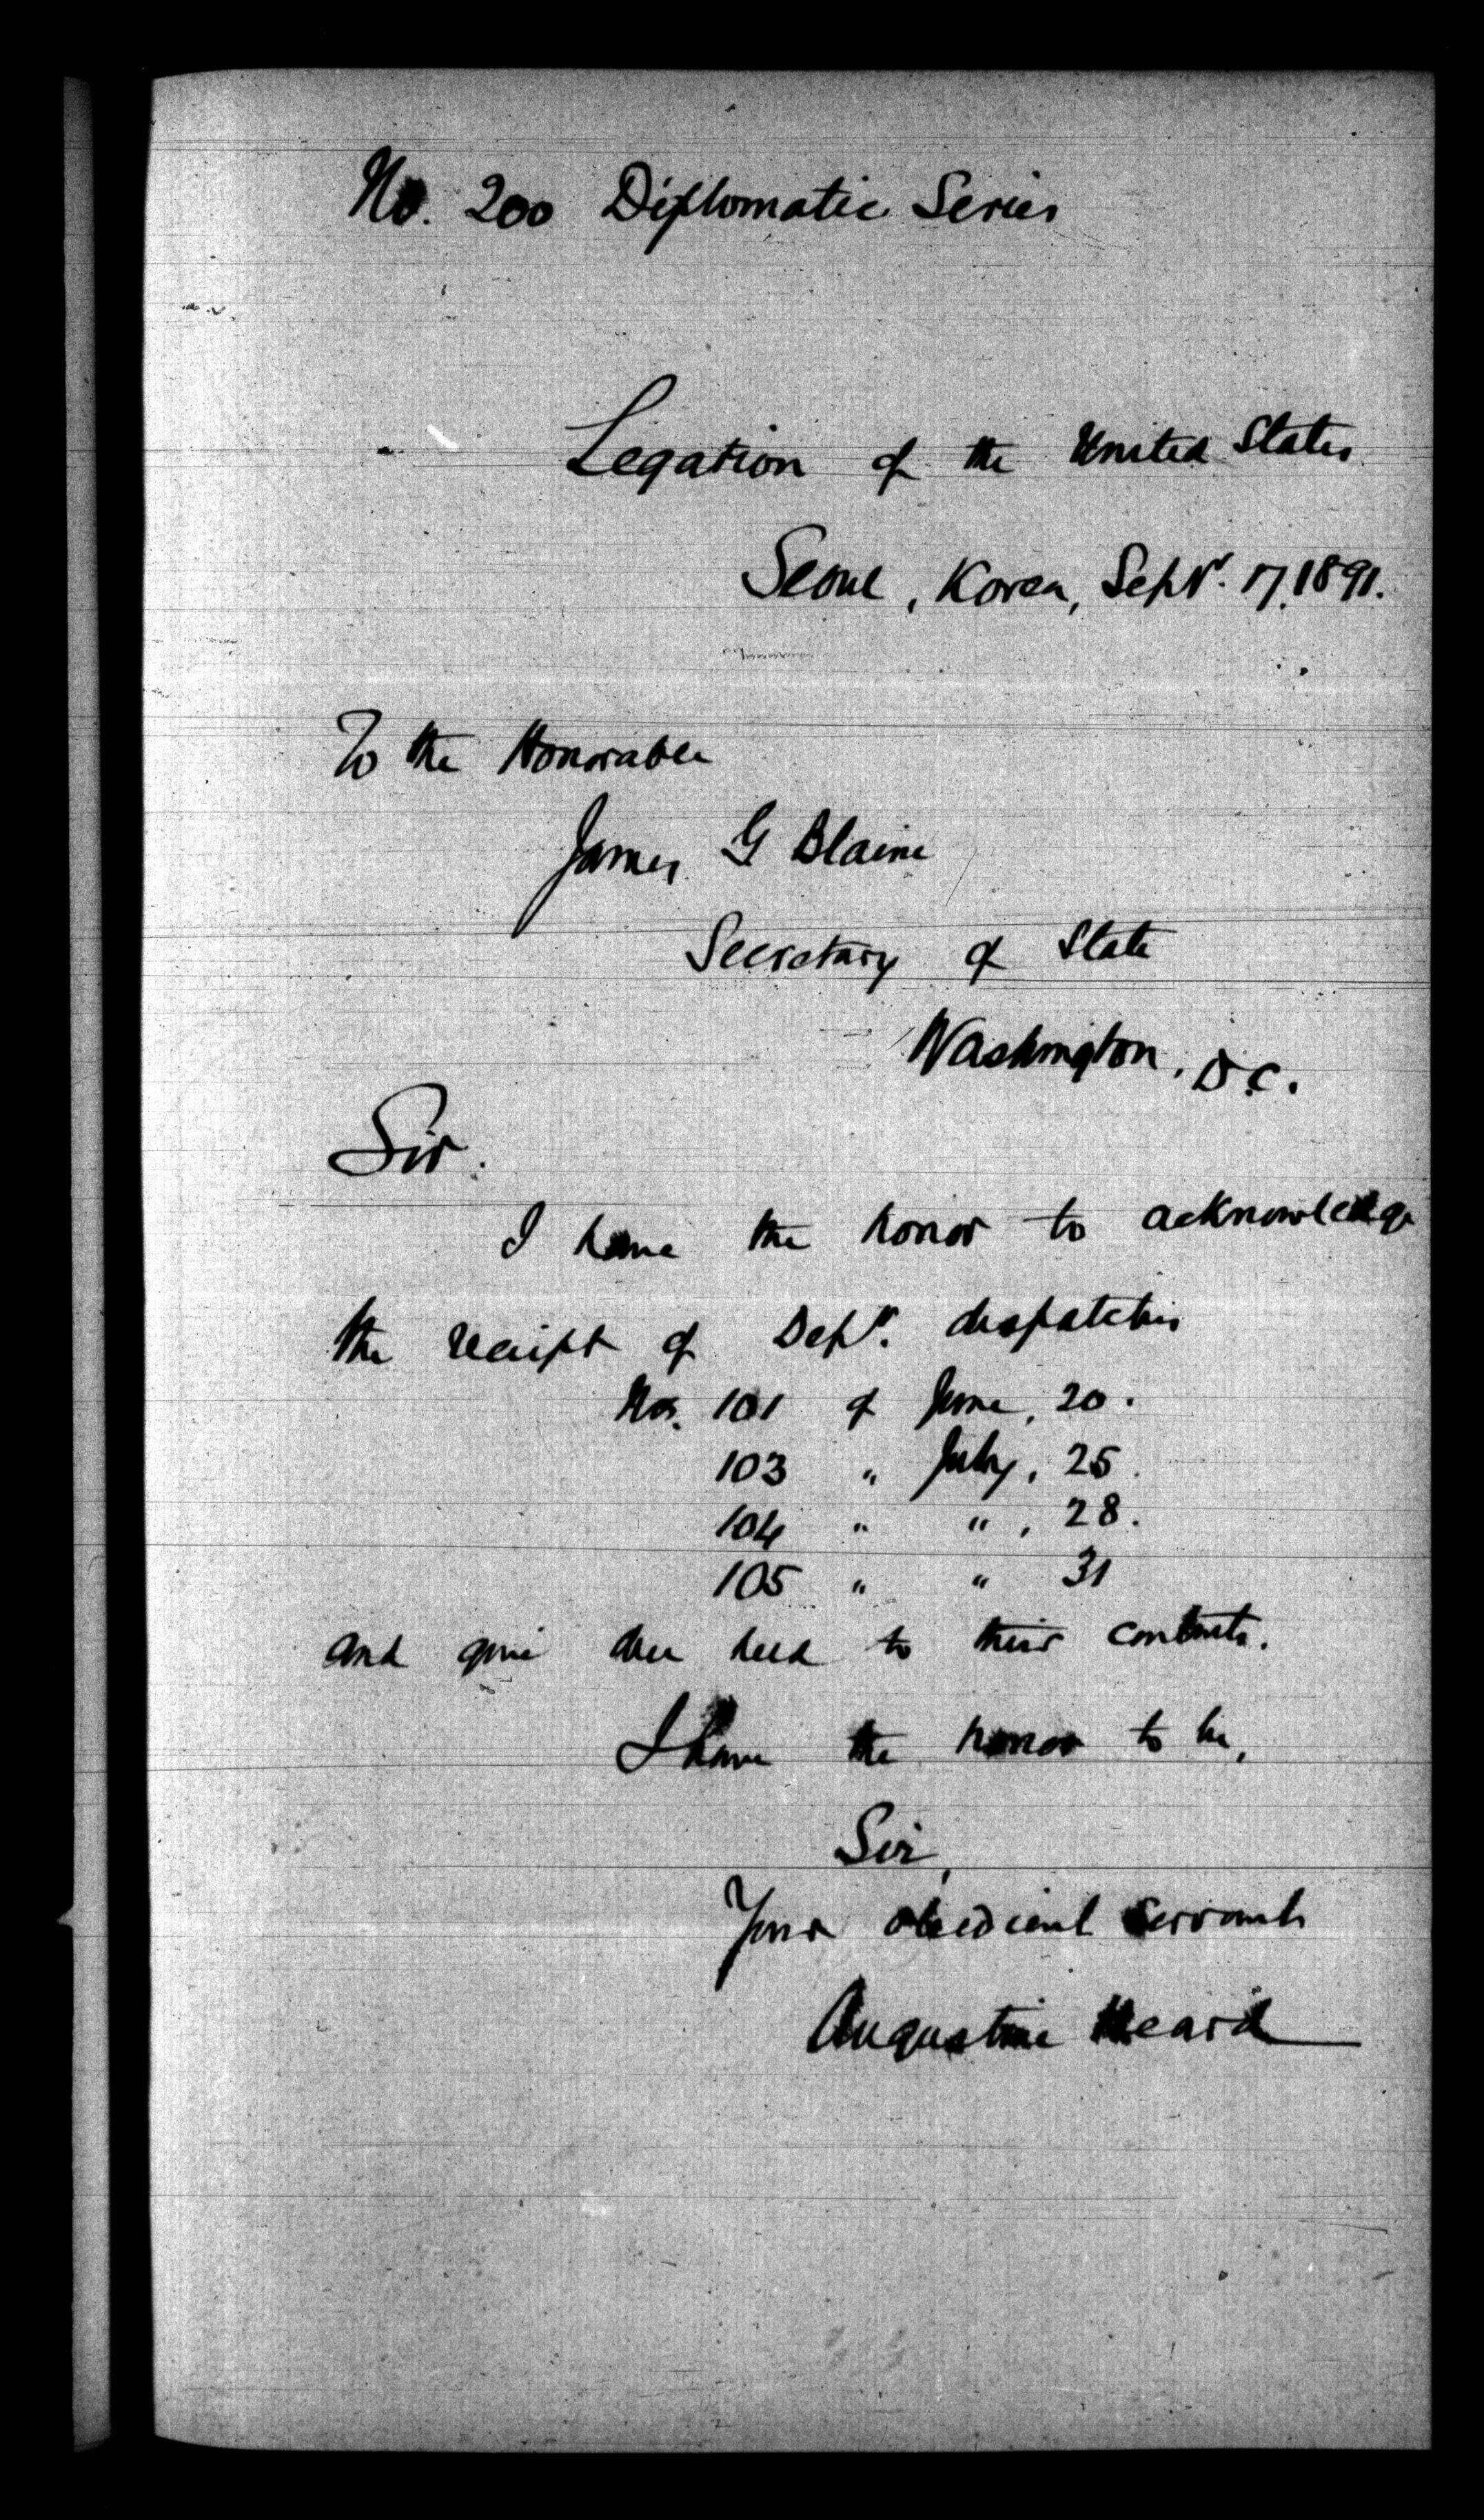 No. 200 Diplomatic Series
Legation of the United States
Seoul, Korea, Sept. 17, 1891.
To the Honorable
James G Blaine
Secretary of State
Washington, D.C.
Sir.
I have the honor to acknowledge
the receipt of Dept. dispatches
Nos. 101 of June, 20.
103 " July, 25.
104 " " , 28.
105 " " 31
and give due heed to their contents.
I have the honor to be,
Sir,
Your obedient servant
Augustine Heard